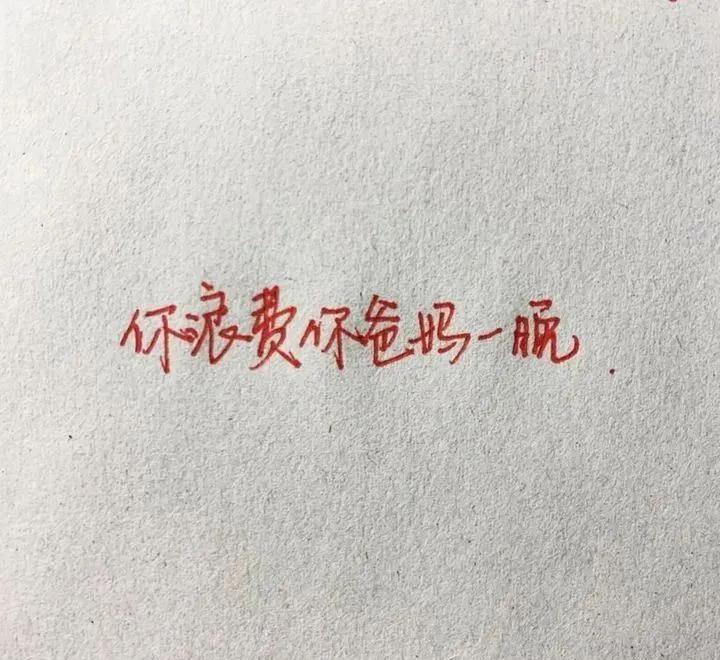 你浪费你爸妈一脱.